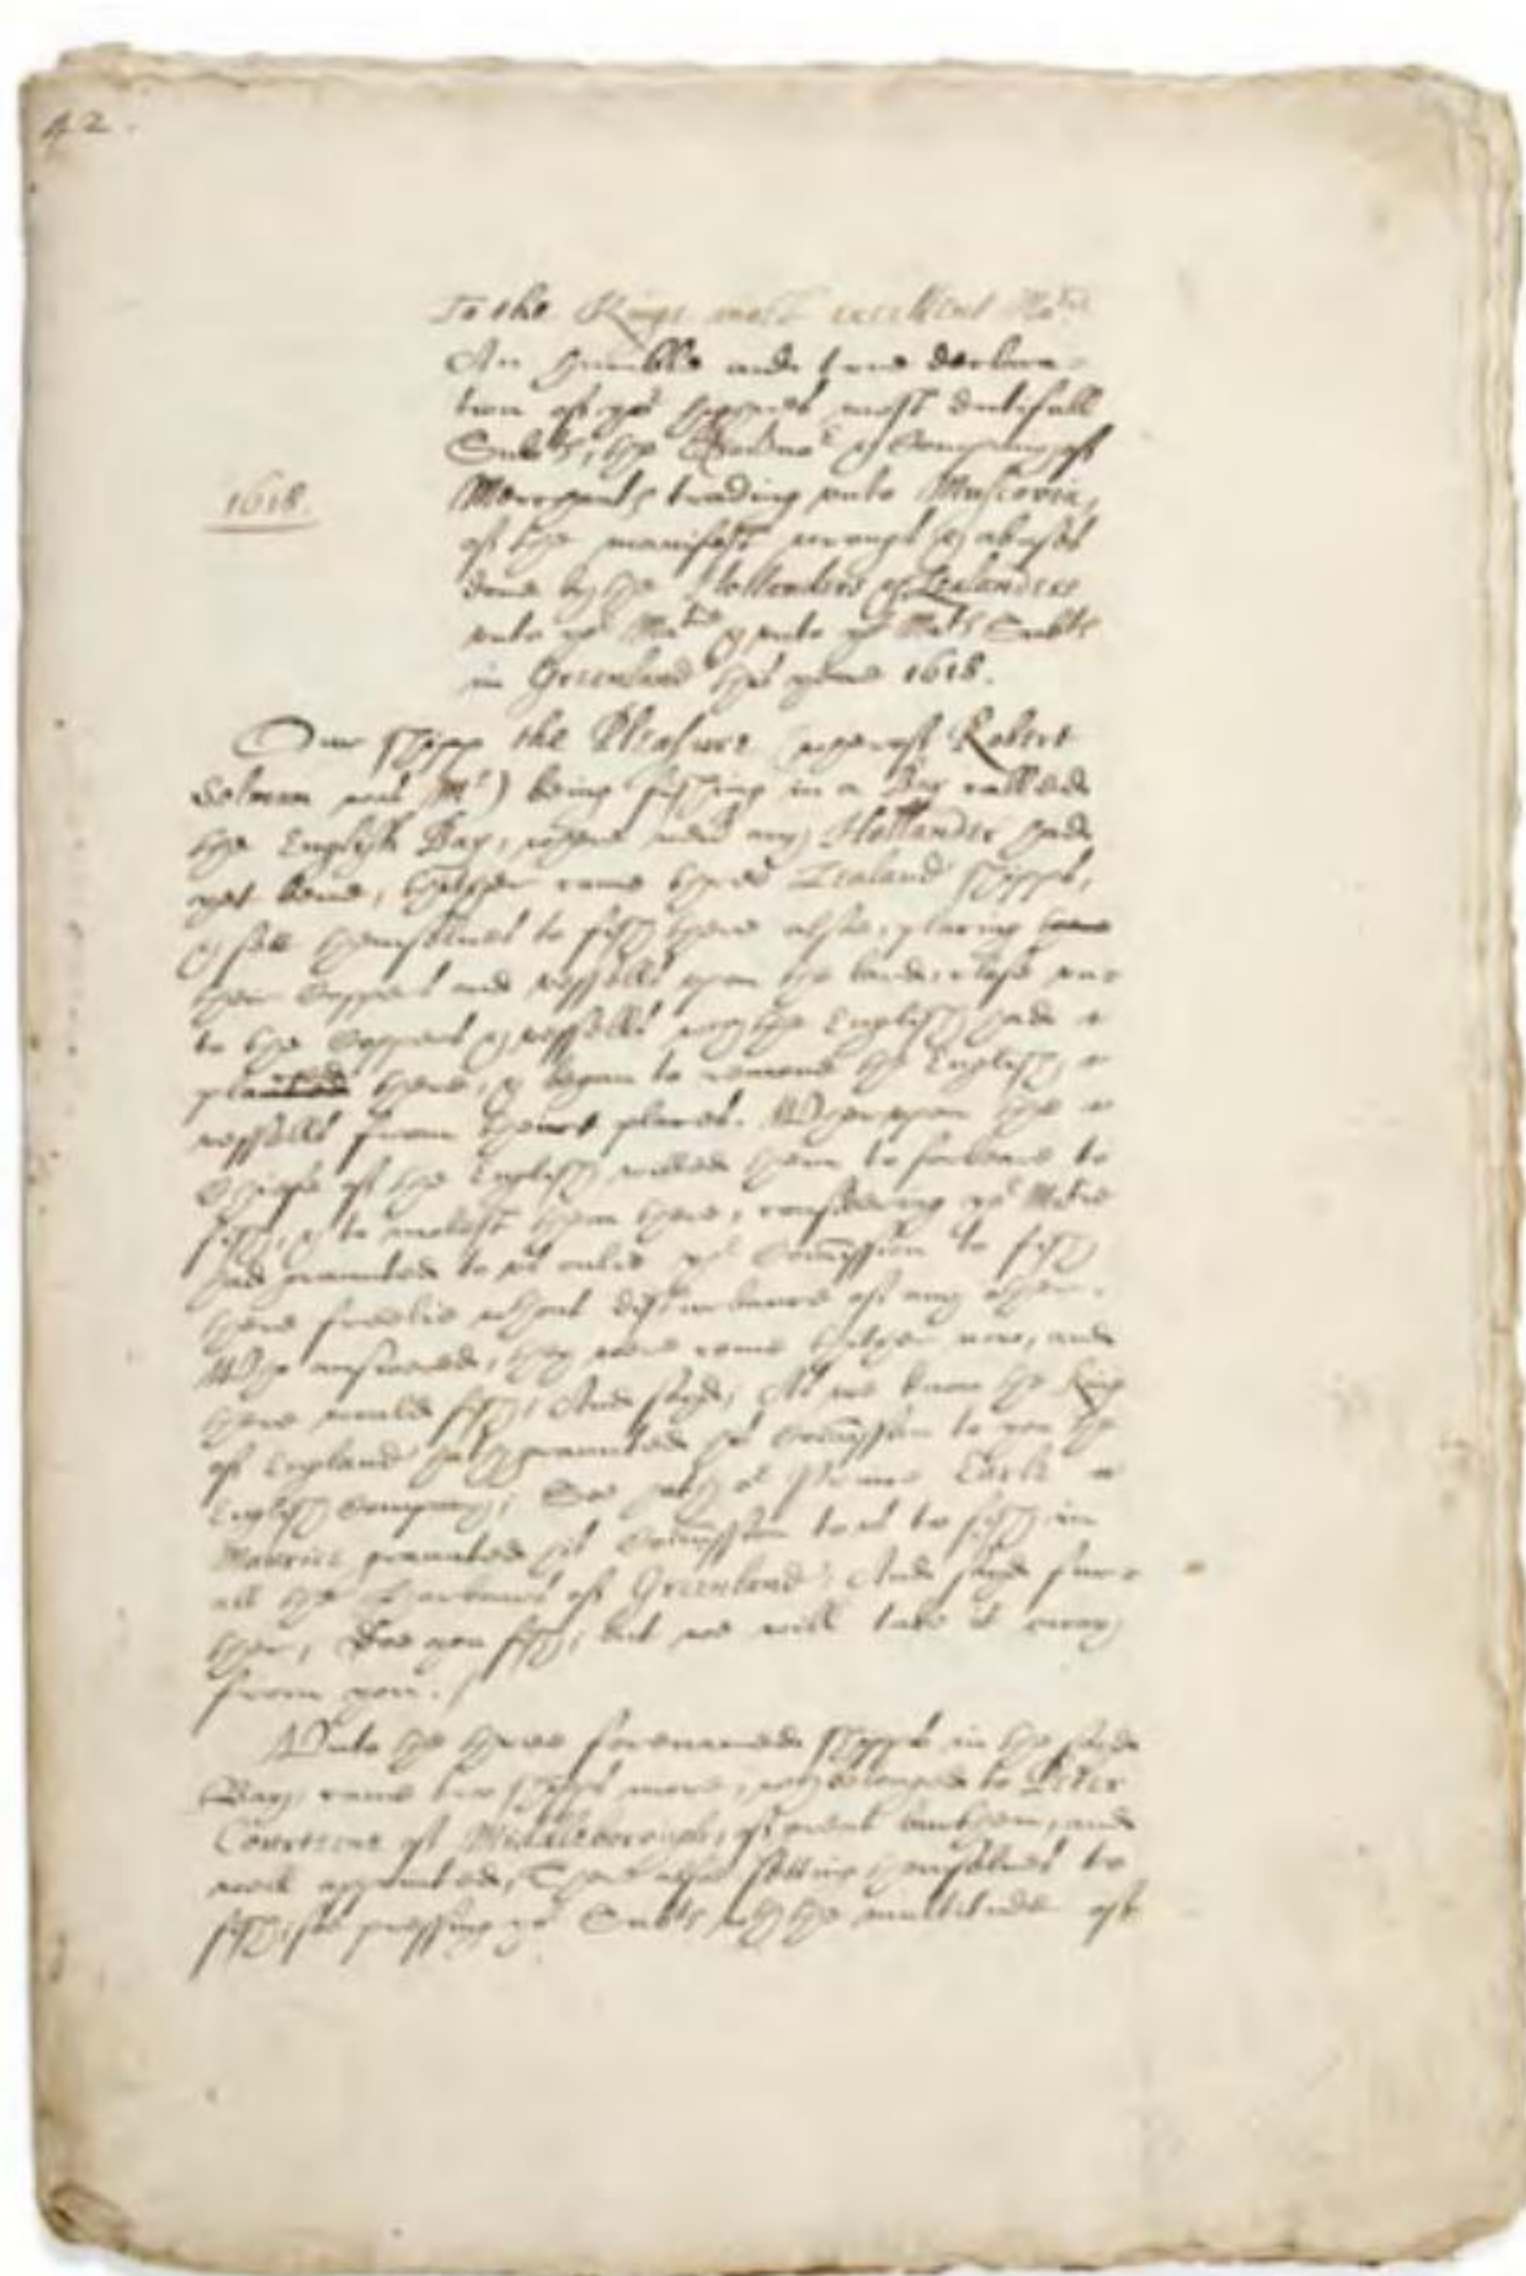 42.
To the Kings most excellent Ma.tie
An humble and true declara-
tion of yor highnes most dutifull
Subts, the Governor & Company of
Merchants trading unto Muscovia,
1618.
of the manifest wrongs & abuses
done by the Hollanders & Zealanders
unto yor Matie & unto yor Mats Subts
in Greenland this yeare 1618.
Our shipp the Pleasure (whereof Robert
Salmon was Mr) being fishing in a Bay called
the English Bay, where never any Hollander had
yet bene, thither came three Zealand shipps,
& sett themselves to fish there also, placing
their Coppers and vessells upon the land, close un-
to the Coppers & vessells wch the English had
there, & began to remove the English
vessells from their places. Whereupon the
Chiefe of the English willed them to forbeare to
fish, & to molest them there, considering yor Matie
had graunted to us onlie yor Comission to fish
there freelie wthout disturbance of any other.
Who answered, they were come thither now, and
there would fish; And said; As we know the King
of England hath graunted his Comission to you the
English Company; Soe hath or Prince Earle
Maurice graunted his Comission to us to fish in
all the Harbours of Greenland: And said fur-
ther, Doe you fish, but we will take it away
from you.
Unto the three forenamed shipps in the said
Bay, came two shipps more, wch belonged to Peter
Courteene of Middleborough, of great burthen, and
well appointed, There also setting themselves to
fish, pressing yor Subts wth the multitude of